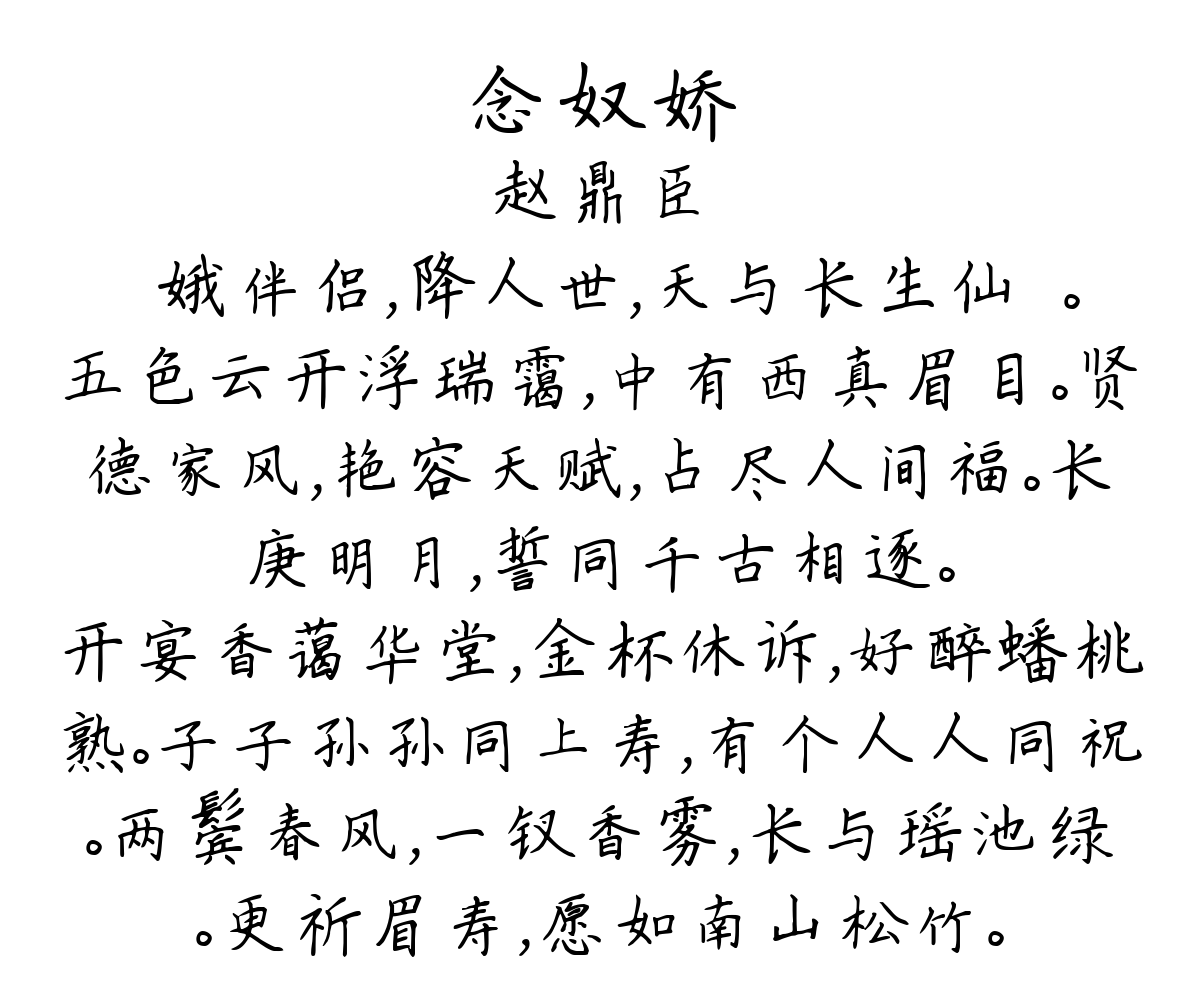 念奴娇
赵鼎臣
娥伴侣,降人世,天与长生仙 。
五色云开浮瑞霭,中有西真眉目。贤
德家风,艳容天赋,占尽人间福。长
庚明月,誓同千古相逐。
开宴香蔼华堂,金杯休诉,好醉蟠桃
熟。子子孙孙同上寿,有个人人同祝
。两鬓春风,一钗香雾,长与瑶池绿
。更祈眉寿,愿如南山松竹。